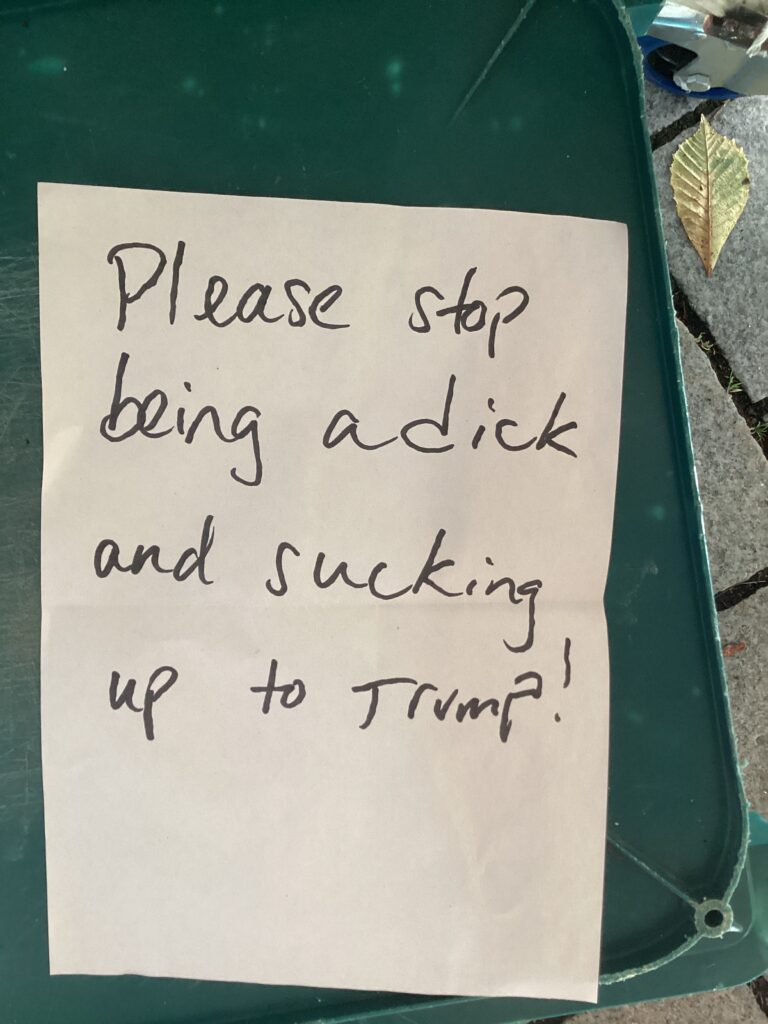 Please stop
being a dick
and sucking
up to Trump!